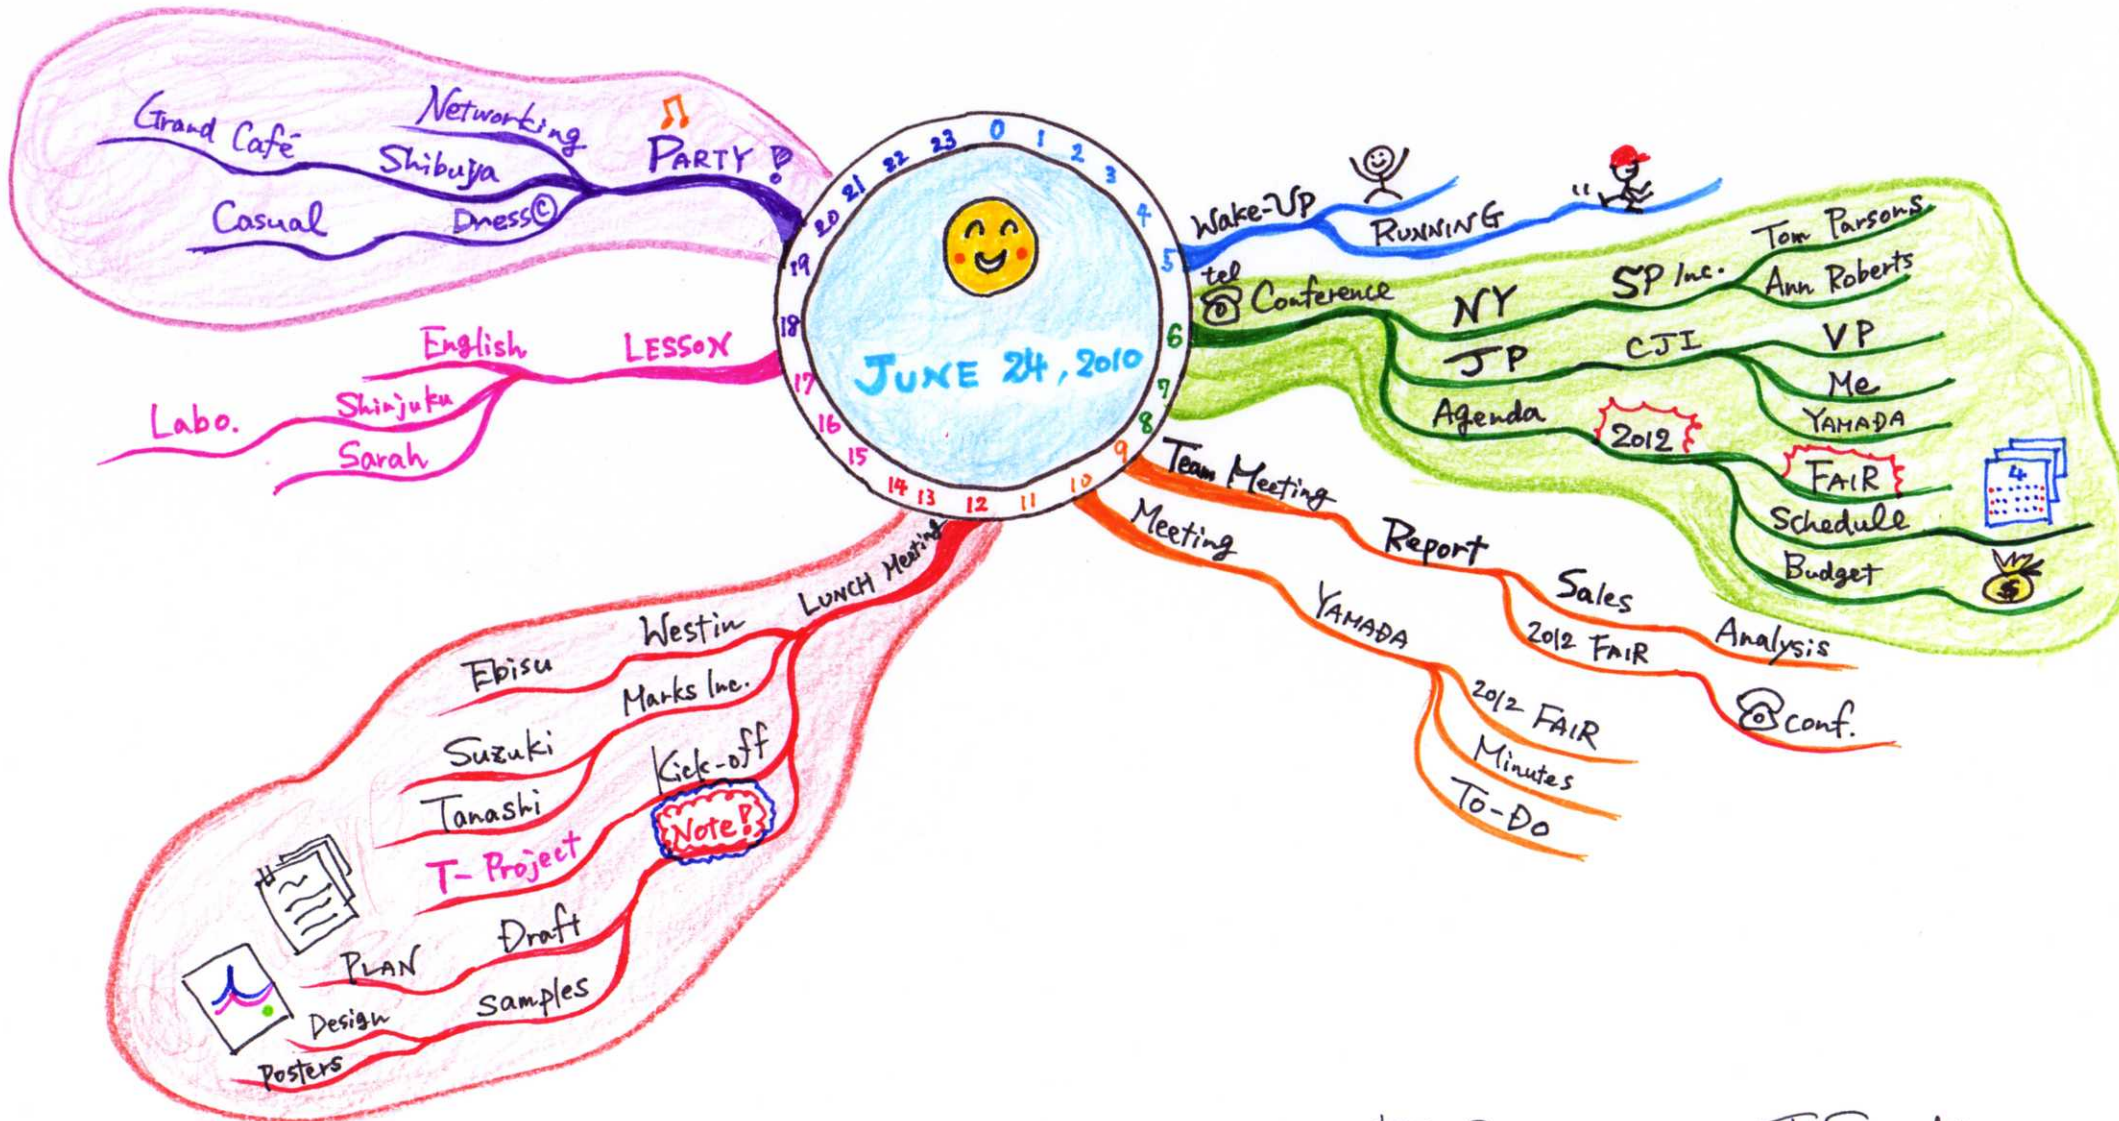 JUNE 24, 2010
0
1
2
3
4
5
6
7
8
9
10
11
12
13
14
15
16
17
18
19
20
21
22
23
Wake-Up
RUNNING
tel
Conference
NY
SP Inc.
Tom Parsons
Ann Roberts
JP
CJI
VP
Me
YAMADA
Agenda
2012
FAIR
Schedule
4
Budget
$
Team Meeting
Report
Sales
Analysis
2012 FAIR
conf.
Meeting
YAMADA
2012 FAIR
Minutes
To-Do
LUNCH Meeting
Westin
Ebisu
Marks Inc.
Suzuki
Tanashi
Kick-off
T-Project
Note!
Draft
PLAN
Samples
Design
Posters
LESSON
English
Shinjuku
Labo.
Sarah
PARTY!
Networking
Shibuya
Grand Café
Dress©
Casual